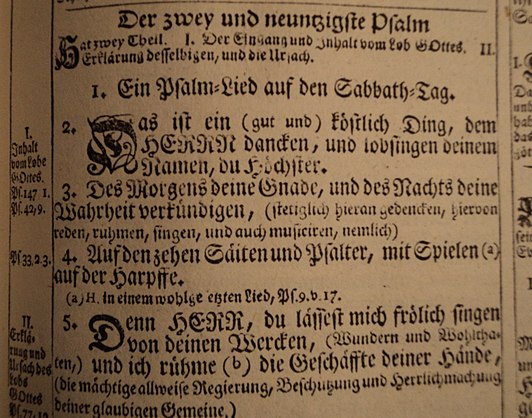 Der zwey und neuntzigste Psalm
Hat zwey Theil. I. Der Eingang und Inhalt vom Lob GOttes. II.
Erklärung desselbigen, und die Ursach.
1. Ein Psalm-Lied auf den Sabbath-Tag.
I.
Inhalt
vom Lobe
GOttes.
Ps. 147 1.
Ps. 42,9.
Ps 33.2.3.
II.
Erklä-
rung und
Ursach des
Lobs
GOttes
Ps. 77.12
2. Das ist ein (gut und) köstlich Ding, dem
HERRN dancken, und lobsingen deinem
Namen, du Höchster.
3. Des Morgens deine Gnade, und des Nachts deine
Wahrheit verkündigen, (stetiglich hieran gedencken, hiervon
reden, ruhmen, singen, und auch musiciren, nemlich)
4. Auf den zehen Säiten und Psalter, mit Spielen (a)
auf der Harpffe.
(a) H. in einem wohlgesetzten Lied, Ps. 9. v. 17.
5. Denn HERR, du lässest mich frölich singen
von deinen Wercken, (Wundern und Wohltha-
ten,) und ich rühme (b) die Geschäffte deiner Hände,
(die mächtige allweise Regierung, Beschutzung und Herrlichmachung
deiner glaubigen Gemeine.)